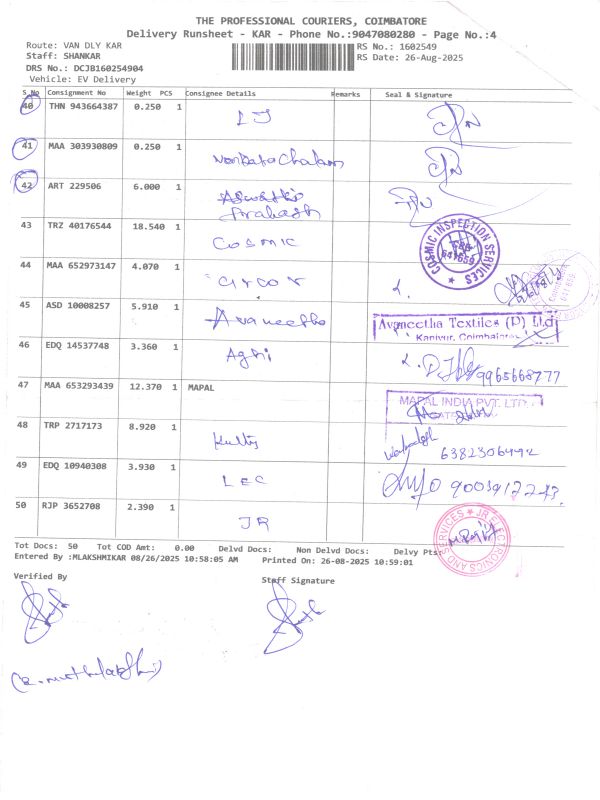 THE PROFESSIONAL COURIERS, COIMBATORE
Delivery Runsheet - KAR - Phone No.:9047080280 - Page No.:4
Route: VAN DLY KAR RS No.: 1602549
Staff: SHANKAR RS Date: 26-Aug-2025
DRS No.: DCJB160254904
Vehicle: EV Delivery
S.No Consignment No Weight PCS Consignee Details Remarks Seal & Signature
40 THN 943664387 0.250 1 LJ
41 MAA 303930809 0.250 1 Venkatachalam
42 ART 229506 6.000 1
Prakash
43 TRZ 40176544 18.540 1 COSMIC COSMIC INSPECTION SERVICES 641659
44 MAA 652973147 4.070 1
45 ASD 10008257 5.910 1 Avaneetha Avaneetha Textiles (P) Ltd
Kaniyur, Coimbatore
46 EDQ 14537748 3.360 1 Agni 9965668777
47 MAA 653293439 12.370 1 MAPAL MAPAL INDIA PVT. LTD.
48 TRP 2717173 8.920 1 6382306492
49 EDQ 10940308 3.930 1 LEC
50 RJP 3652708 2.390 1 JR JR ELECTRONICS AND SERVICES
Tot Docs: 50 Tot COD Amt: 0.00 Delvd Docs: Non Delvd Docs: Delvy Pts:
Entered By :MLAKSHMIKAR 08/26/2025 10:58:05 AM Printed On: 26-08-2025 10:59:01
Verified By Staff Signature